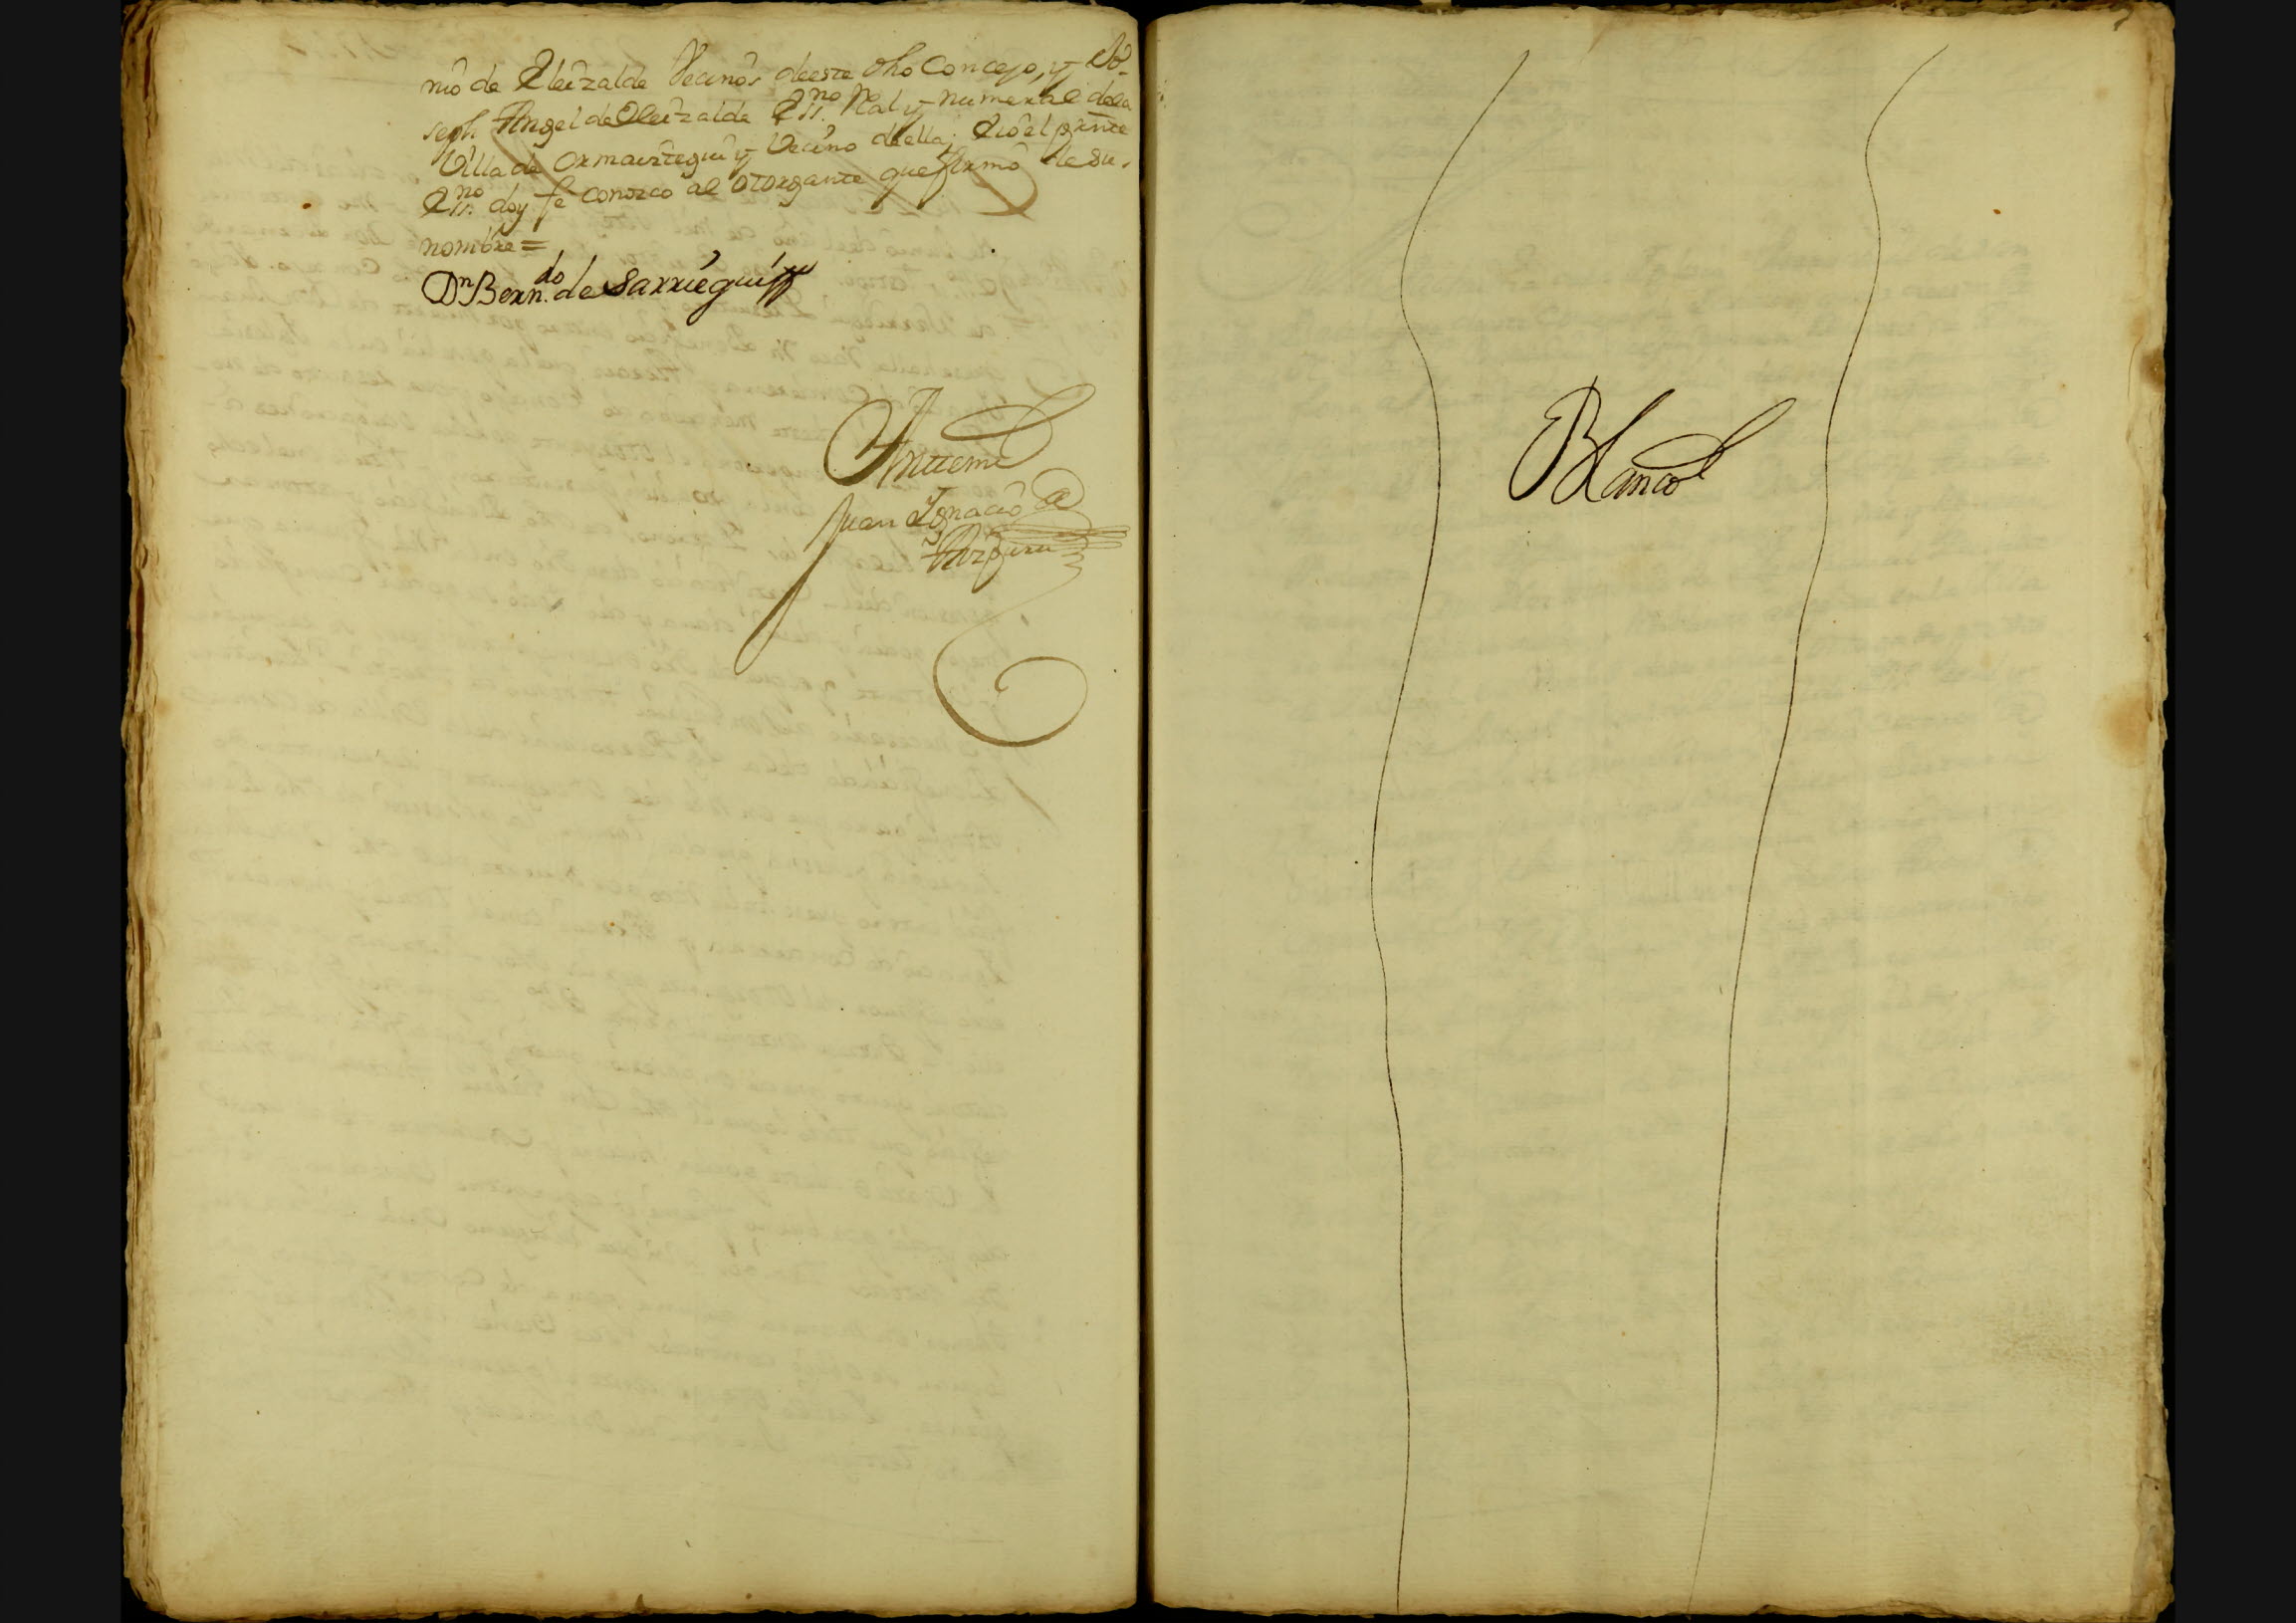 nio de Eleizalde Vecinos deeste dho Concejo, y Jo-
seph Angel de Eleizalde Ess.no Real y numeral dela
Villa de Ormaiztegui y Vecino de ella; E io el presnte
Ess.no doy fe conozco al otorgante que firmò de su
nombre =
Dn Bern.do de Sarriegui
Anttemi
Juan Ignacio de
Aizpuru
Blanco